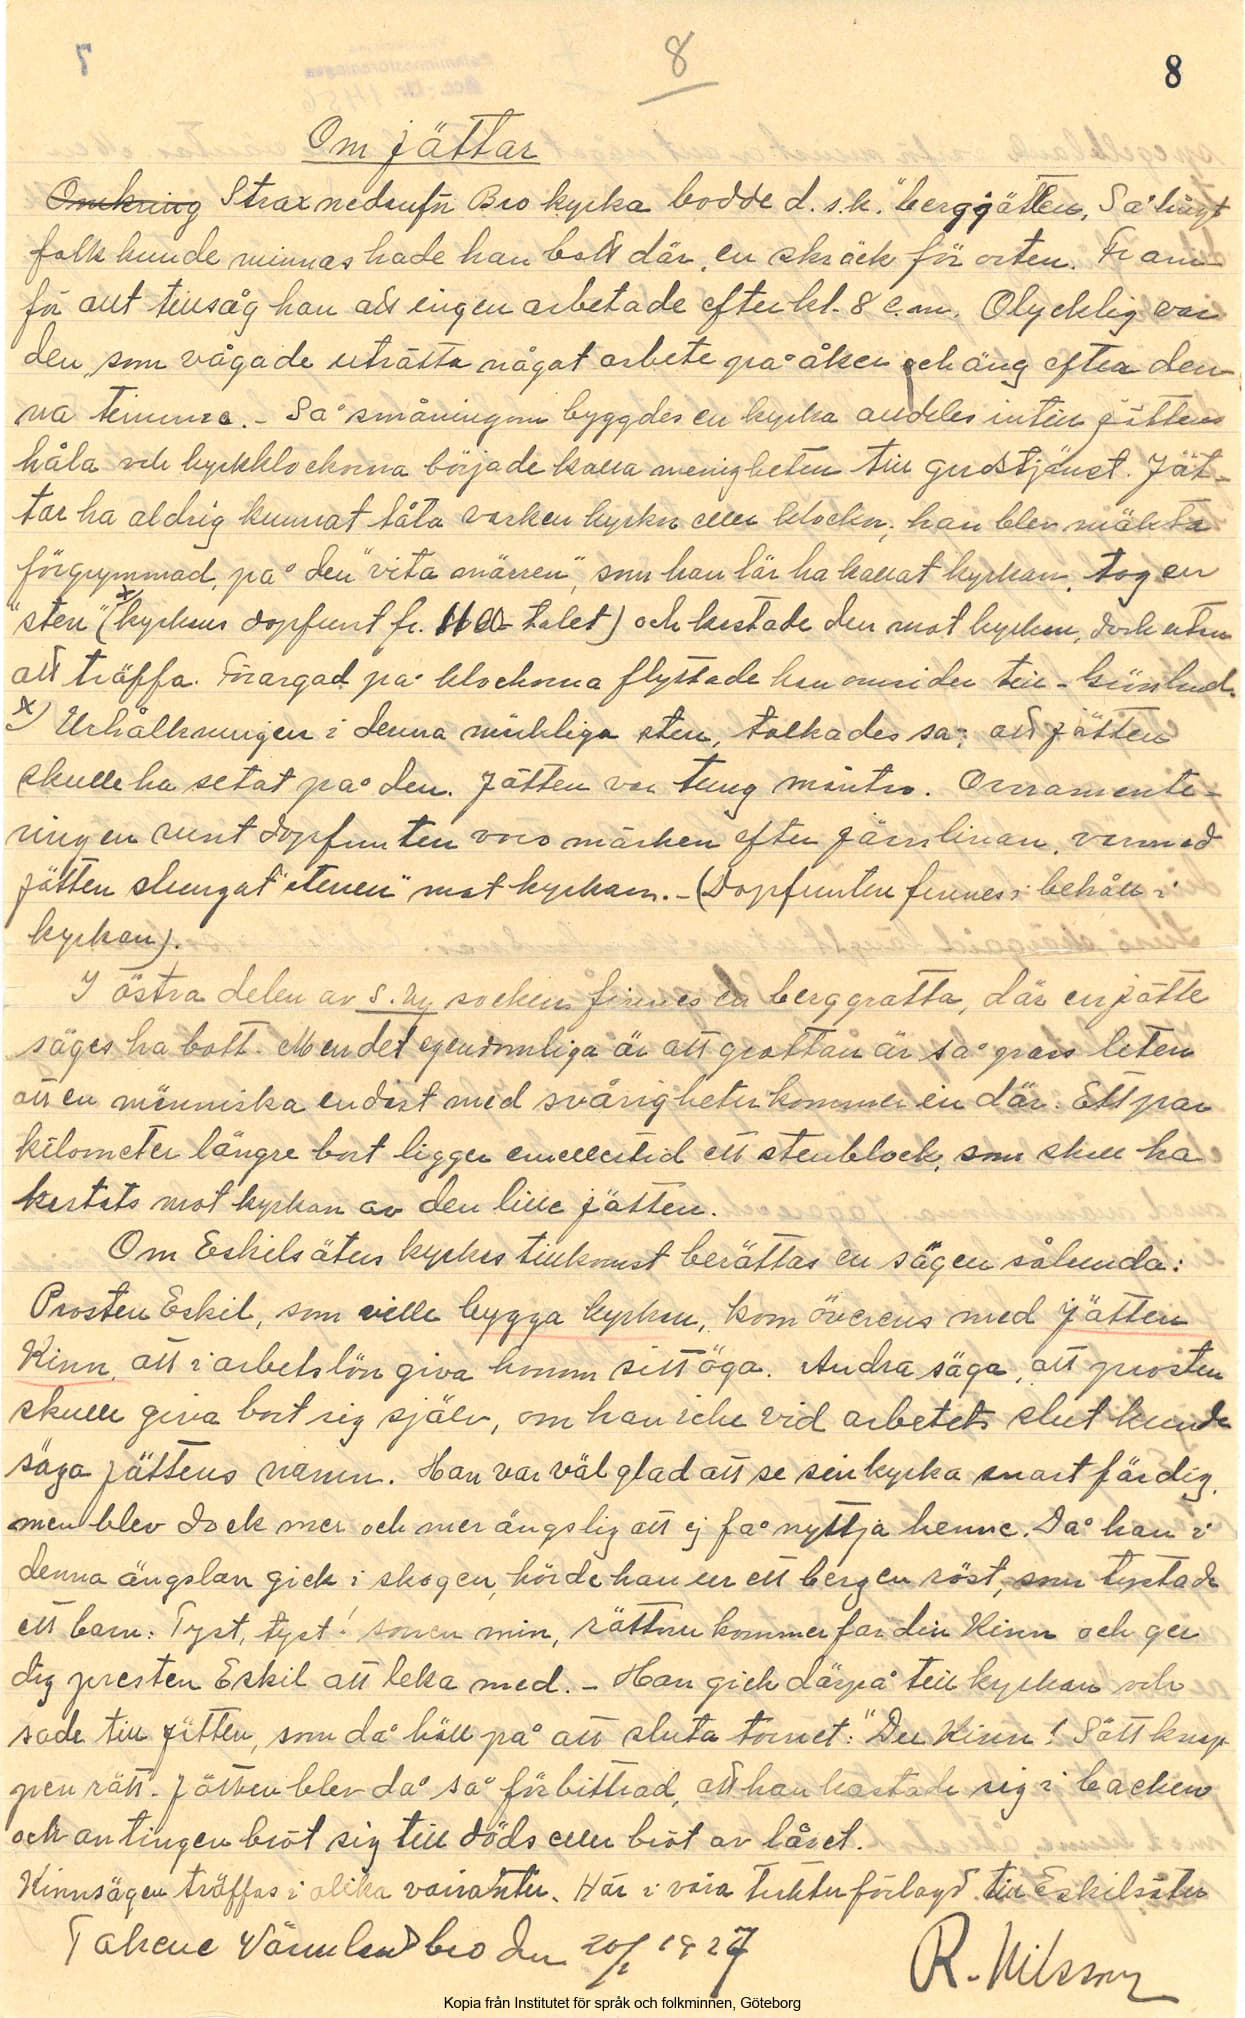 8 8
Om jättar
Omkring Strax nedanför Bro kyrka bodde d. s. k. "bergjätten". Så långt
folk kunde minnas hade han bott där, en skräck för orten. Fram-
för allt tillsåg han att ingen arbetade efter kl. 8 e.m. Olycklig var
den, som vågade uträtta något arbete på åker och äng efter den-
na timma. - Så småningom byggdes en kyrka alldeles intill jättens
håla och kyrkklockorna började kalla menigheten till gudstjänst. Jät-
tar ha aldrig kunnat tåla varken kyrkor eller klockor; han blev mäkta
förgrymmad på den "vita märren", som han lär ha kallat kyrkan, tog en
"sten" x) (kyrkans dopfunt fr. 1100-talet) och kastade den mot kyrkan, dock utan
att träffa. Förargad på klockorna flyttade han omsider till
x) Urhålkningen i denna märkliga sten, tolkades så: att jätten
skulle ha setat på den. Jätten var tung måntro. Ornamente-
ringen runt dopfunten voro märken efter järnlinan, varmed
jätten slungat "stenen" mot kyrkan. - (Dopfunten finnes i behåll i
kyrkan).
I östra delen av S. Ny socken finnes en berggrotta, där en jätte
säges ha bott. Men det egendomliga är att grottan är så pass liten
att en människa endast med svårigheter kommer in där. Ett par
kilometer längre bort ligger emellertid ett stenblock, som skall ha
kastats mot kyrkan av den lille jätten.
Om Eskilsäters kyrkas tillkomst berättas en sägen sålunda:
Prosten Eskil, som ville bygga kyrkan, kom överens med jätten
Kinn, att i arbetslön giva honom sitt öga. Andra säga, att prosten
skulle giva bort sig själv, om han icke vid arbetets slut kunde
säga jättens namn. Han var väl glad att se sin kyrka snart färdig,
men blev dock mer och mer ängslig att ej få nyttja henne. Då han i
denna ängslan gick i skogen, hörde han ur ett berg en röst, som tystade
ett barn: Tyst, tyst! sonen min, rättnu kommer far din Kinn och ger
dig presten Eskil att leka med. - Han gick därpå till kyrkan och
sade till jätten, som då höll på att sluta tornet: "Du Kinn! Sätt knap-
pen rätt. Jätten blev då så förbittrad, att han kastade sig i backen
och antingen bröt sig till döds eller bröt av låret.
Kinnsägen träffas i olika varianter. Här i våra trakter förlagd till Eskilsäter
Takene Värmlandsbro den 20/1 1927
R. Nilsson
Kopia från Institutet för språk och folkminnen, Göteborg